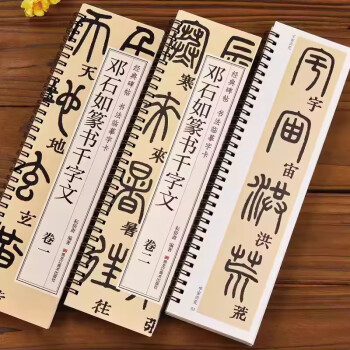 天
地
玄
经典碑帖 书法临摹字卡
邓石如篆书千字文
卷一
辰
寒
來
暑
往
经典碑帖 书法临摹字卡
邓石如篆书千字文
卷二
宇
宙
洪
荒